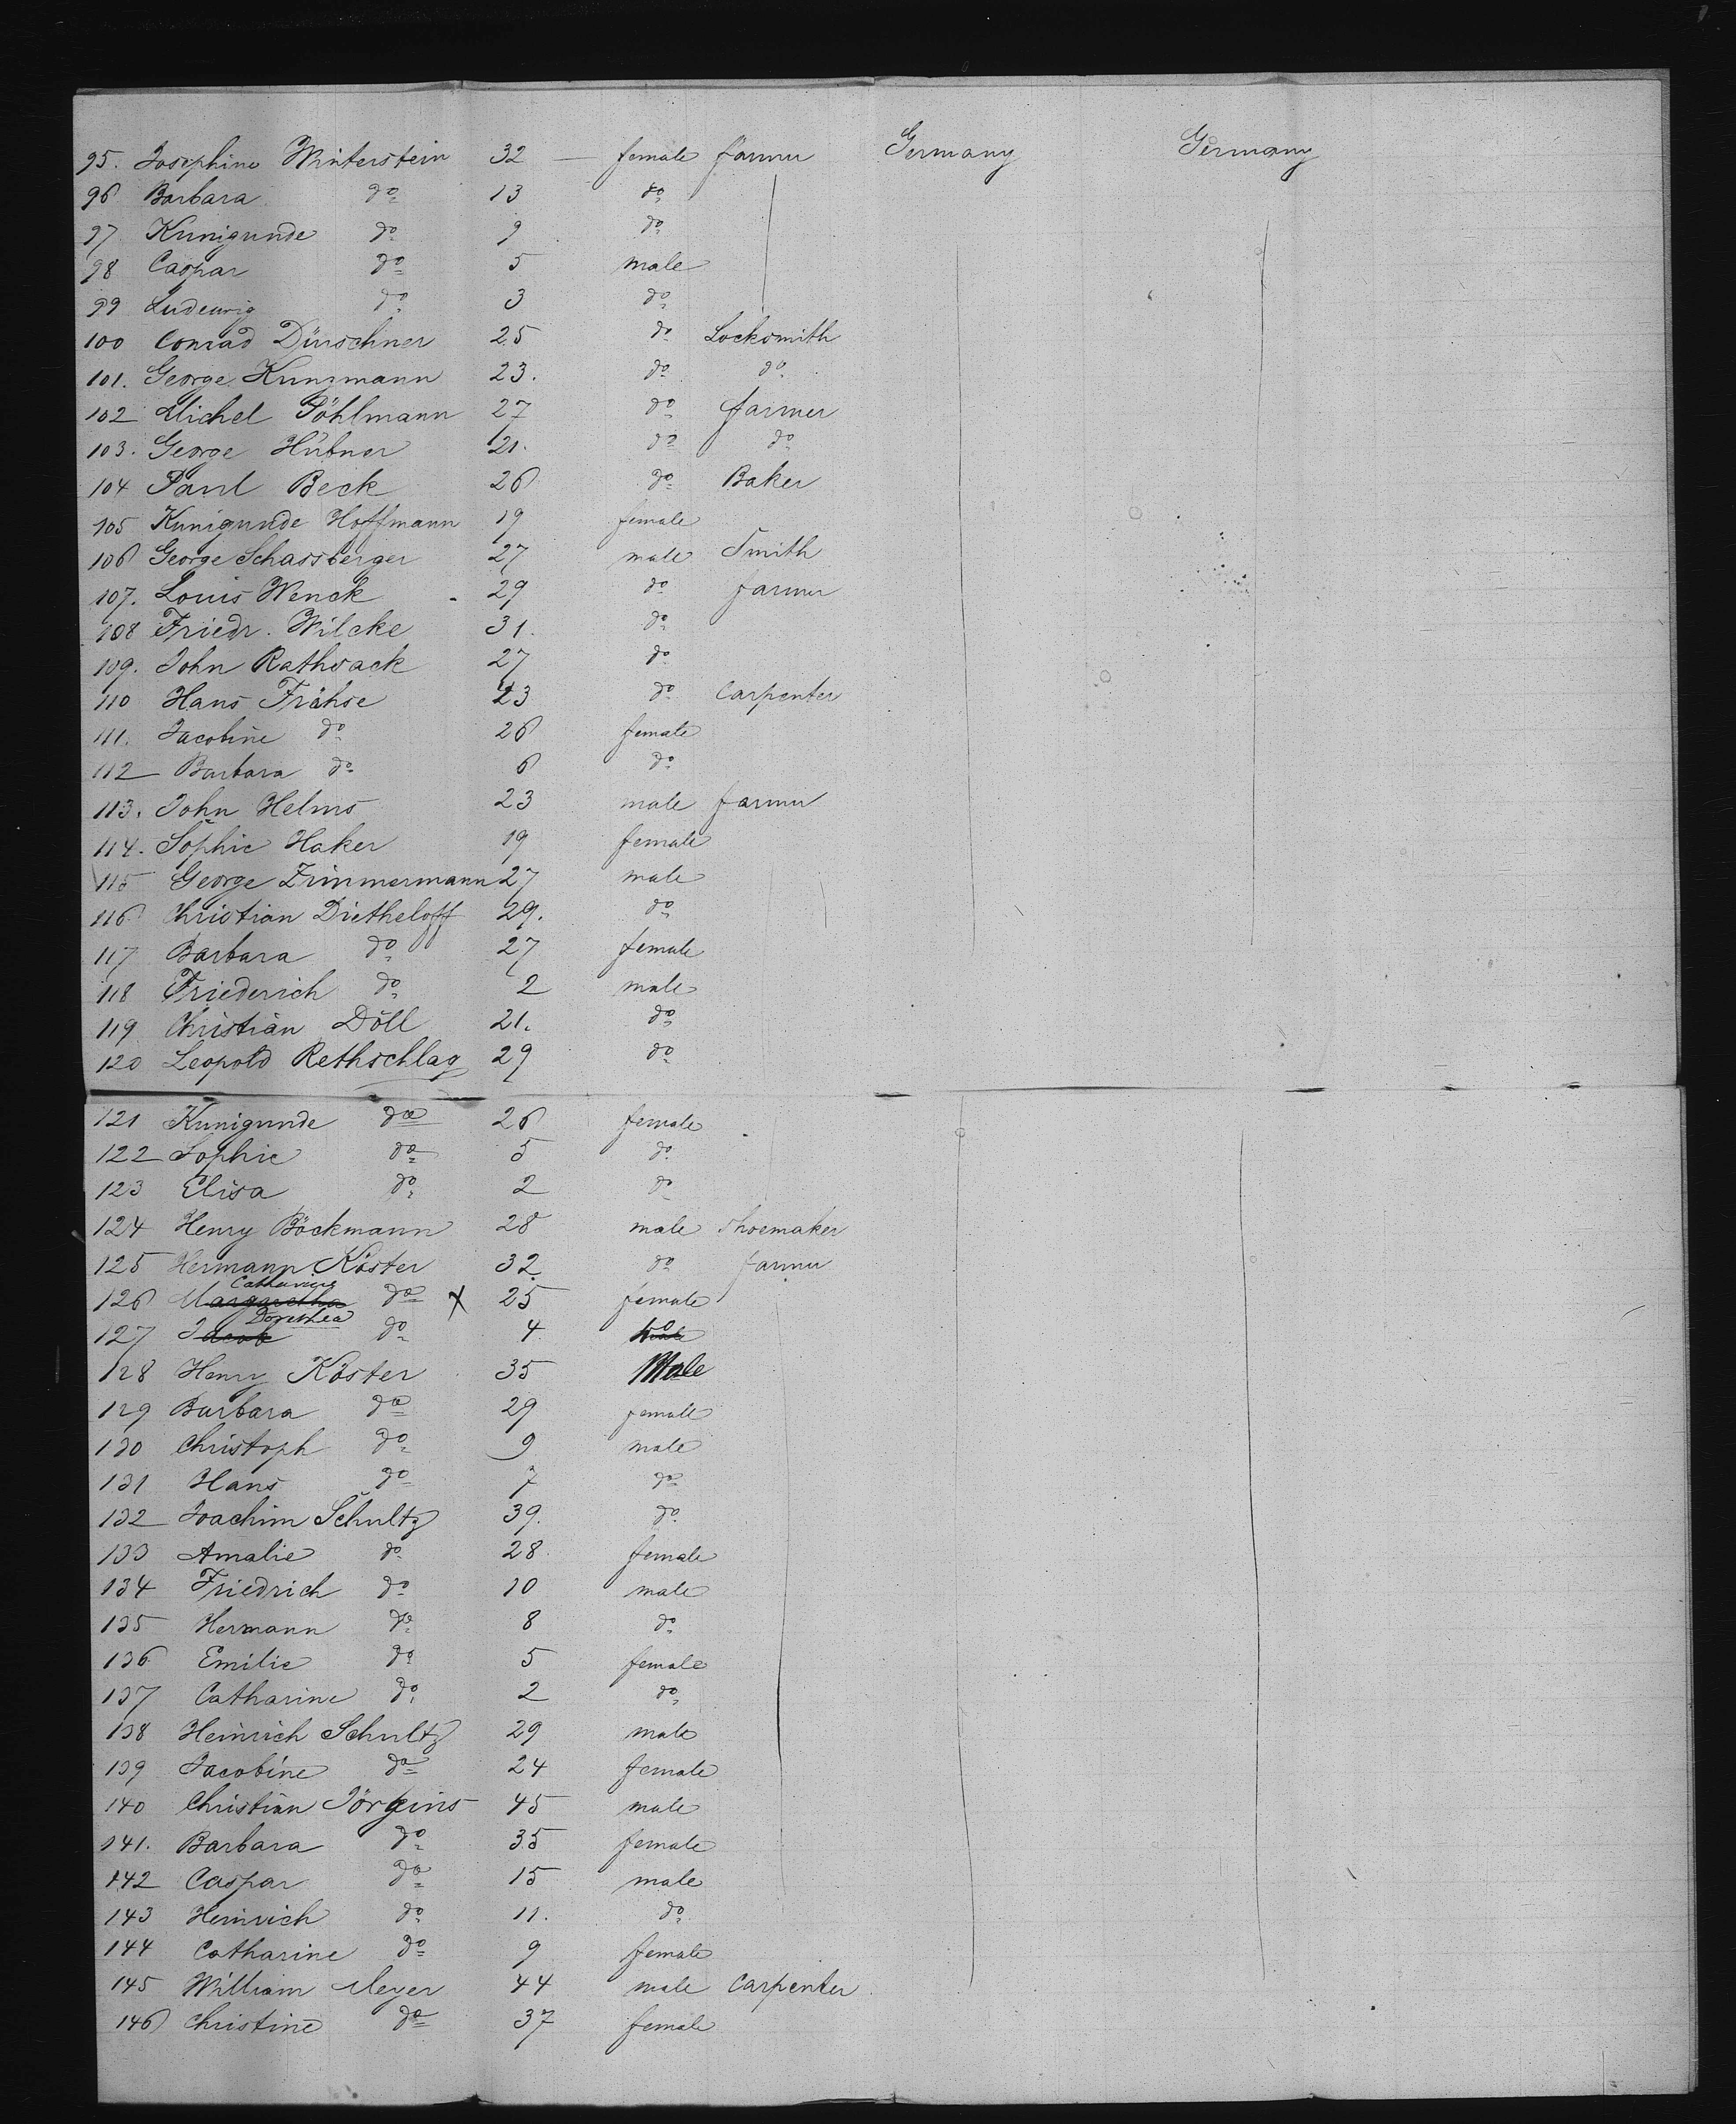 95. Josephine Winterstein 32 — female farmer Germany Germany
96 Barbara do 13 do
97 Kunigunde do 9 do
98 Caspar do 5 male
99 Ludewig do 3 do
100 Conrad Dürschner 25 do Locksmith
101. George Kunzmann 23. do do
102 Michel Pöhlmann 27 do farmer
103. George Hübner 21. do do
104 Paul Beck 26 do Baker
105 Kunigunde Hoffmann 19 female
106 George Schassberger 27 male Smith
107. Louis Wenck 29 do farmer
108 Friedr. Wilcke 31. do
109. John Rathsack 27 do
110 Hans Frähse 23 do Carpenter
111. Jacobine do 26 female
112 Barbara do 6 do
113. John Helms 23 male farmer
114. Sophie Haker 19 female
115 George Zimmermann 27 male
116 Christian Dietheloff 29. do
117 Barbara do 27 female
118 Friederich do 2 male
119 Christian Döll 21. do
120 Leopold Rethschlag 29 do
121 Kunigunde do 26 female
122 Sophie do 5 do
123 Elisa do 2 do
124 Henry Böckmann 28 male Shoemaker
125 Hermann Köster 32 do farmer
Catharine
126 Margaretha do x 25 female
Dorethea
127 Jacob do 4. do
128 Henry Köster 35 Male
129 Barbara do 29 female
130 Christoph do 9 male
131 Hans do 7 do
132 Joachim Schultz 39. do
133 Amalie do 28 female
134 Friedrich do 10 male
135 Hermann do 8 do
136 Emilie do 5 female
137 Catharine do 2 do
138 Heinrich Schultz 29 male
139 Jacobine do 24 female
140 Christian Jörgins 45 male
141. Barbara do 35 female
142 Caspar do 15 male
143 Heinrich do 11. do
144 Catharine do 9 female
145 William Meyer 44 male Carpenter
146 Christine do 37 female